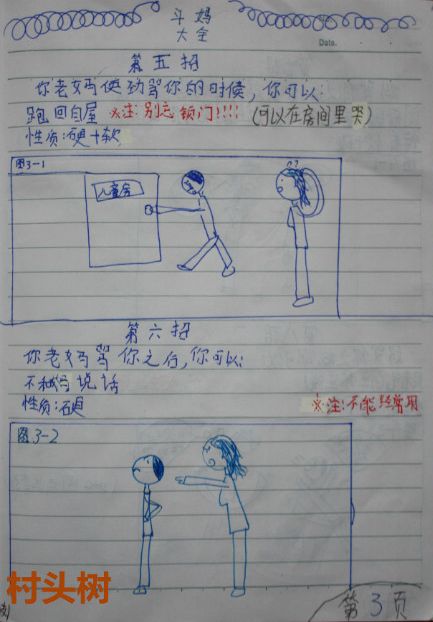 斗妈
大全
Date.
第五招
你老妈使劲骂你的时候,你可以:
跑回自屋 ※注:别忘锁门!!!! (可以在房间里哭)
性质:硬+软
图3-1
儿童房
第六招
你老妈骂你之后,你可以:
不和妈说话
性质:硬
※注:不能经常用
图3-2
村头树
第3页